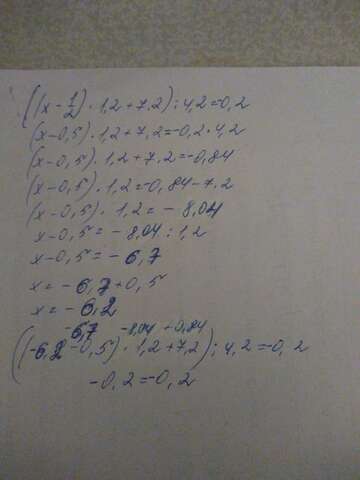 ((x-1/2)·1,2+7,2):4,2=-0,2
(x-0,5)·1,2+7,2=-0,2·4,2
(x-0,5)·1,2+7,2=-0,84
(x-0,5)·1,2=-0,84-7,2
(x-0,5)·1,2=-8,04
x-0,5=-8,04:1,2
x-0,5=-6,7
x=-6,7+0,5
x=-6,2
-6,7 -8,04 +0,84
((-6,2-0,5)·1,2+7,2):4,2=-0,2
-0,2=-0,2